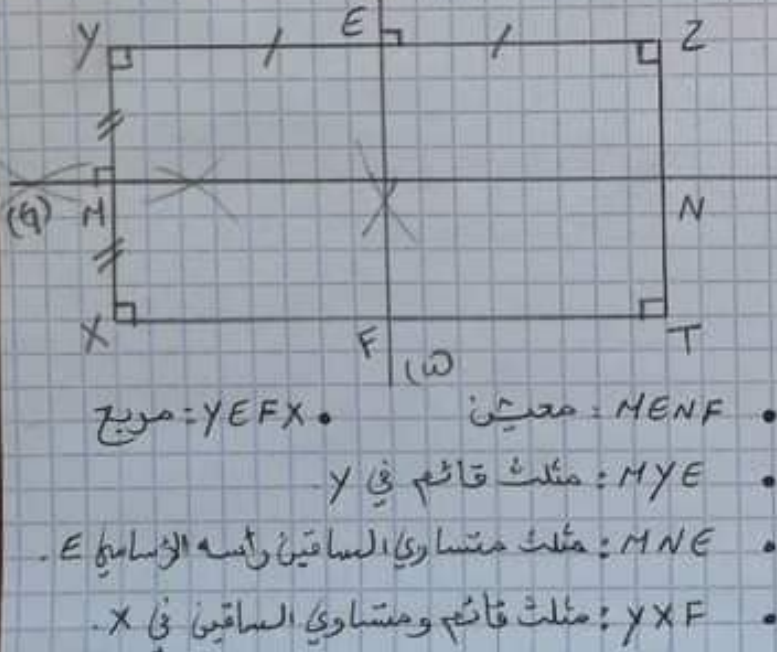 Y E Z
(G) M N
X F T
(ω)
• MENF : معين • YEFX : مربع
• MYE : مثلث قائم في Y
• MNE : مثلث متساوي الساقين رأسه الأساسي E.
• YXF : مثلث قائم ومتساوي الساقين في X.